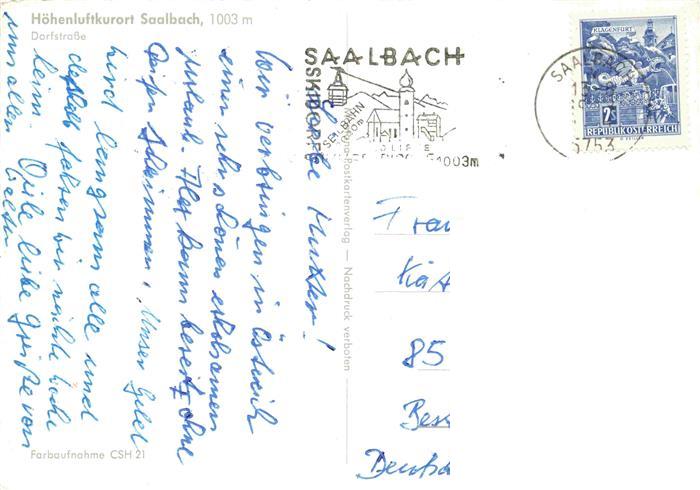 Höhenluftkurort Saalbach, 1003 m
Dorfstraße
Liebe Mutter!
Wir verbringen in Östreich
einen sehr schönen erholsamen
Urlaub. Ilse kann bereits ohne
Reifen schwimmen. Unser Geld
wird langsam alle und
deshalb fahren wir nächste Woche
heim. Viele liebe Grüße von
uns allen
Farbaufnahme CSH 21
Postkartenverlag — Nachdruck verboten
SAALBACH
SKIDORF
SEILBAHN
1003m
SAALBACH
5753
KLAGENFURT
2S
REPUBLIK ÖSTERREICH
Frau
Kät
85
Bess
Deutsc